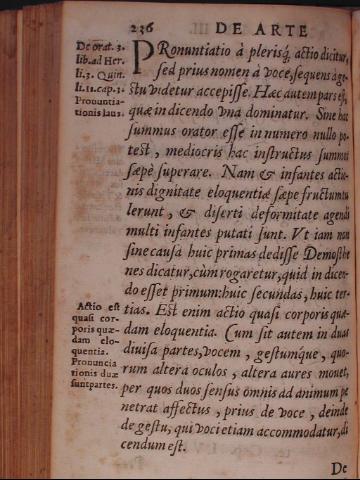 236 DE ARTE
De orat. 3.
lib. ad Her.
li. 3. Quin.
li. 11. cap. 3.
Pronuntia-
tionis laus.
PRonuntiatio à plerisq́; actio dicitur,
sed prius nomen à voce, sequens à ge-
stu videtur accepisse. Hæc autem pars est,
quæ in dicendo vna dominatur. Sine hac
summus orator esse in numero nullo po-
test, mediocris hac instructus summos
sæpè superare. Nam & infantes actio-
nis dignitate eloquentiæ sæpe fructum tu
lerunt, & diserti deformitate agendi
multi infantes putati sunt. Vt iam non
sine causa huic primas dedisse Demosthe
nes dicatur, cùm rogaretur, quid in dicen-
do esset primum: huic secundas, huic ter-
tias. Est enim actio quasi corporis quæ-
dam eloquentia. Cum sit autem in duas
diuisa partes, vocem, gestumque, quo-
rum altera oculos, altera aures mouet,
per quos duos sensus omnis ad animum pe
netrat affectus, prius de voce, deinde
de gestu, qui voci etiam accommodatur, di
cendum est.
Actio est
quasi cor-
poris quæ-
dam elo-
quentia.
Pronuncia
tionis duæ
sunt partes.
De